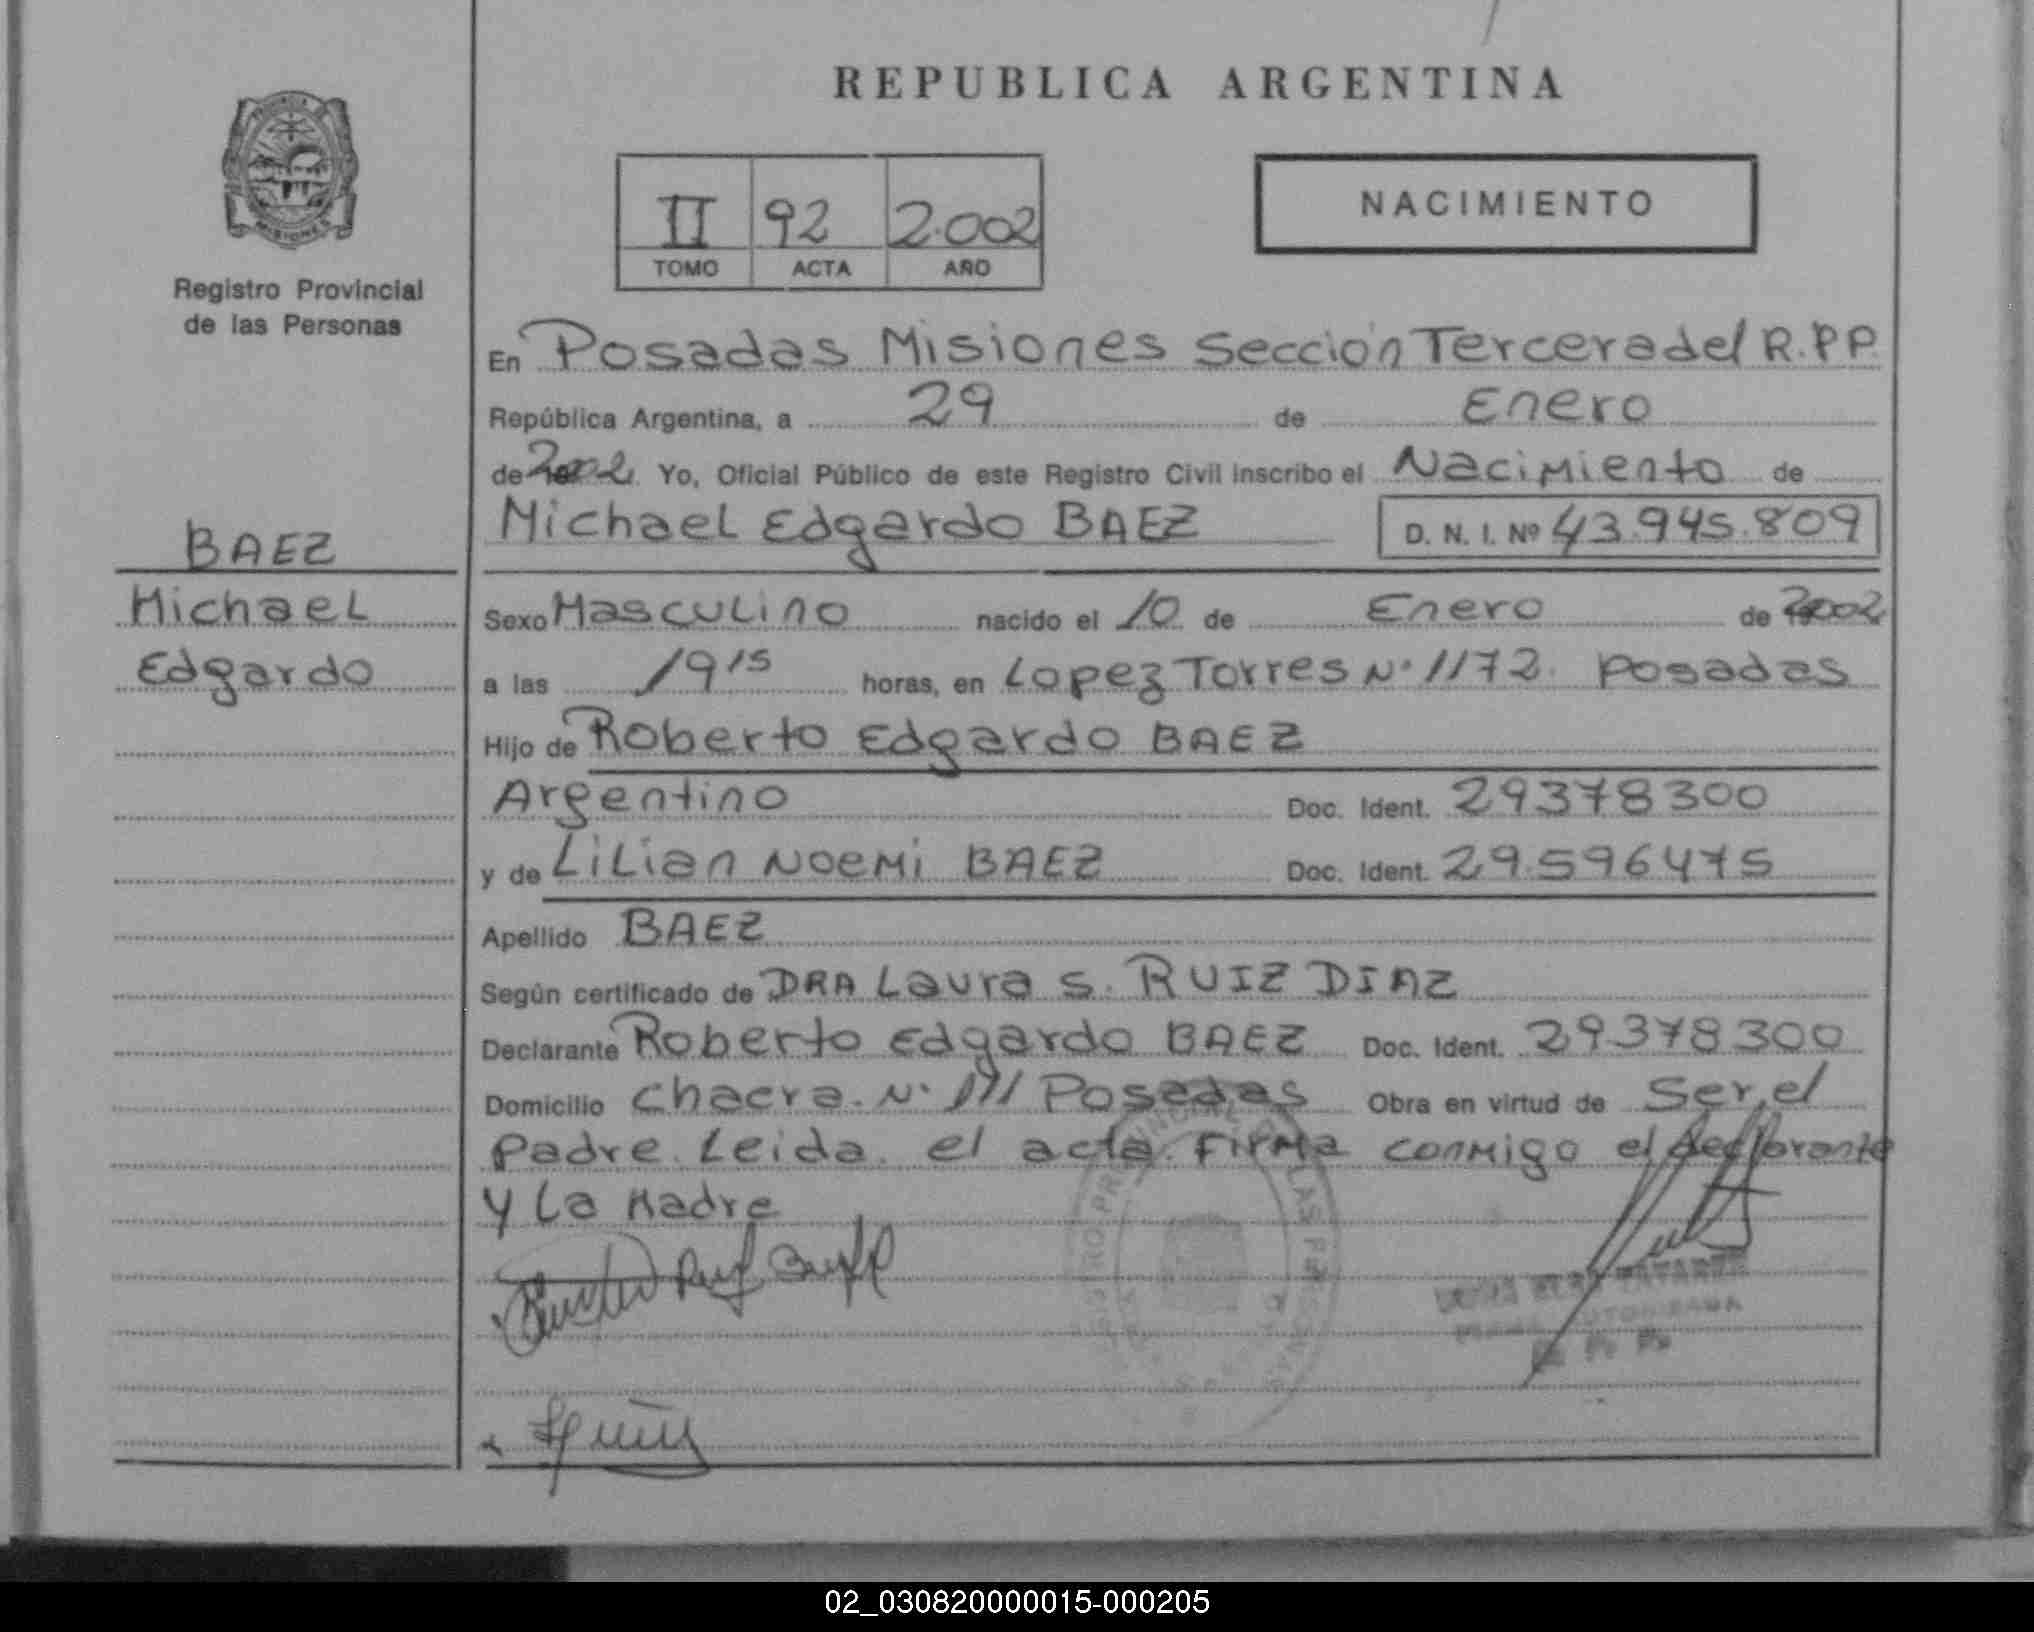 REPUBLICA ARGENTINA
MISIONES
Registro Provincial
de las Personas
II 92 2.002
TOMO ACTA AÑO
NACIMIENTO
En Posadas Misiones Sección Tercera del R.P.P.
República Argentina, a 29 de Enero
de 2002 Yo, Oficial Público de este Registro Civil inscribo el Nacimiento de
Michael Edgardo BAEZ D. N. I. Nº 43.945.809
BAEZ
Michael
Edgardo
Sexo Masculino nacido el 10 de Enero de 2002
a las 19 15 horas, en Lopez Torres Nº 1172. Posadas
Hijo de Roberto Edgardo BAEZ
Argentino Doc. Ident. 29378300
y de Lilian Noemi BAEZ Doc. Ident. 29.596475
Apellido BAEZ
Según certificado de DRA Laura S. RUIZ DIAZ
Declarante Roberto Edgardo BAEZ Doc. Ident. 29378300
Domicilio Chacra. Nº 111 Posadas Obra en virtud de Ser el
Padre. Leida. el acta. Firma conmigo el declarante
y La Madre
02_030820000015-000205